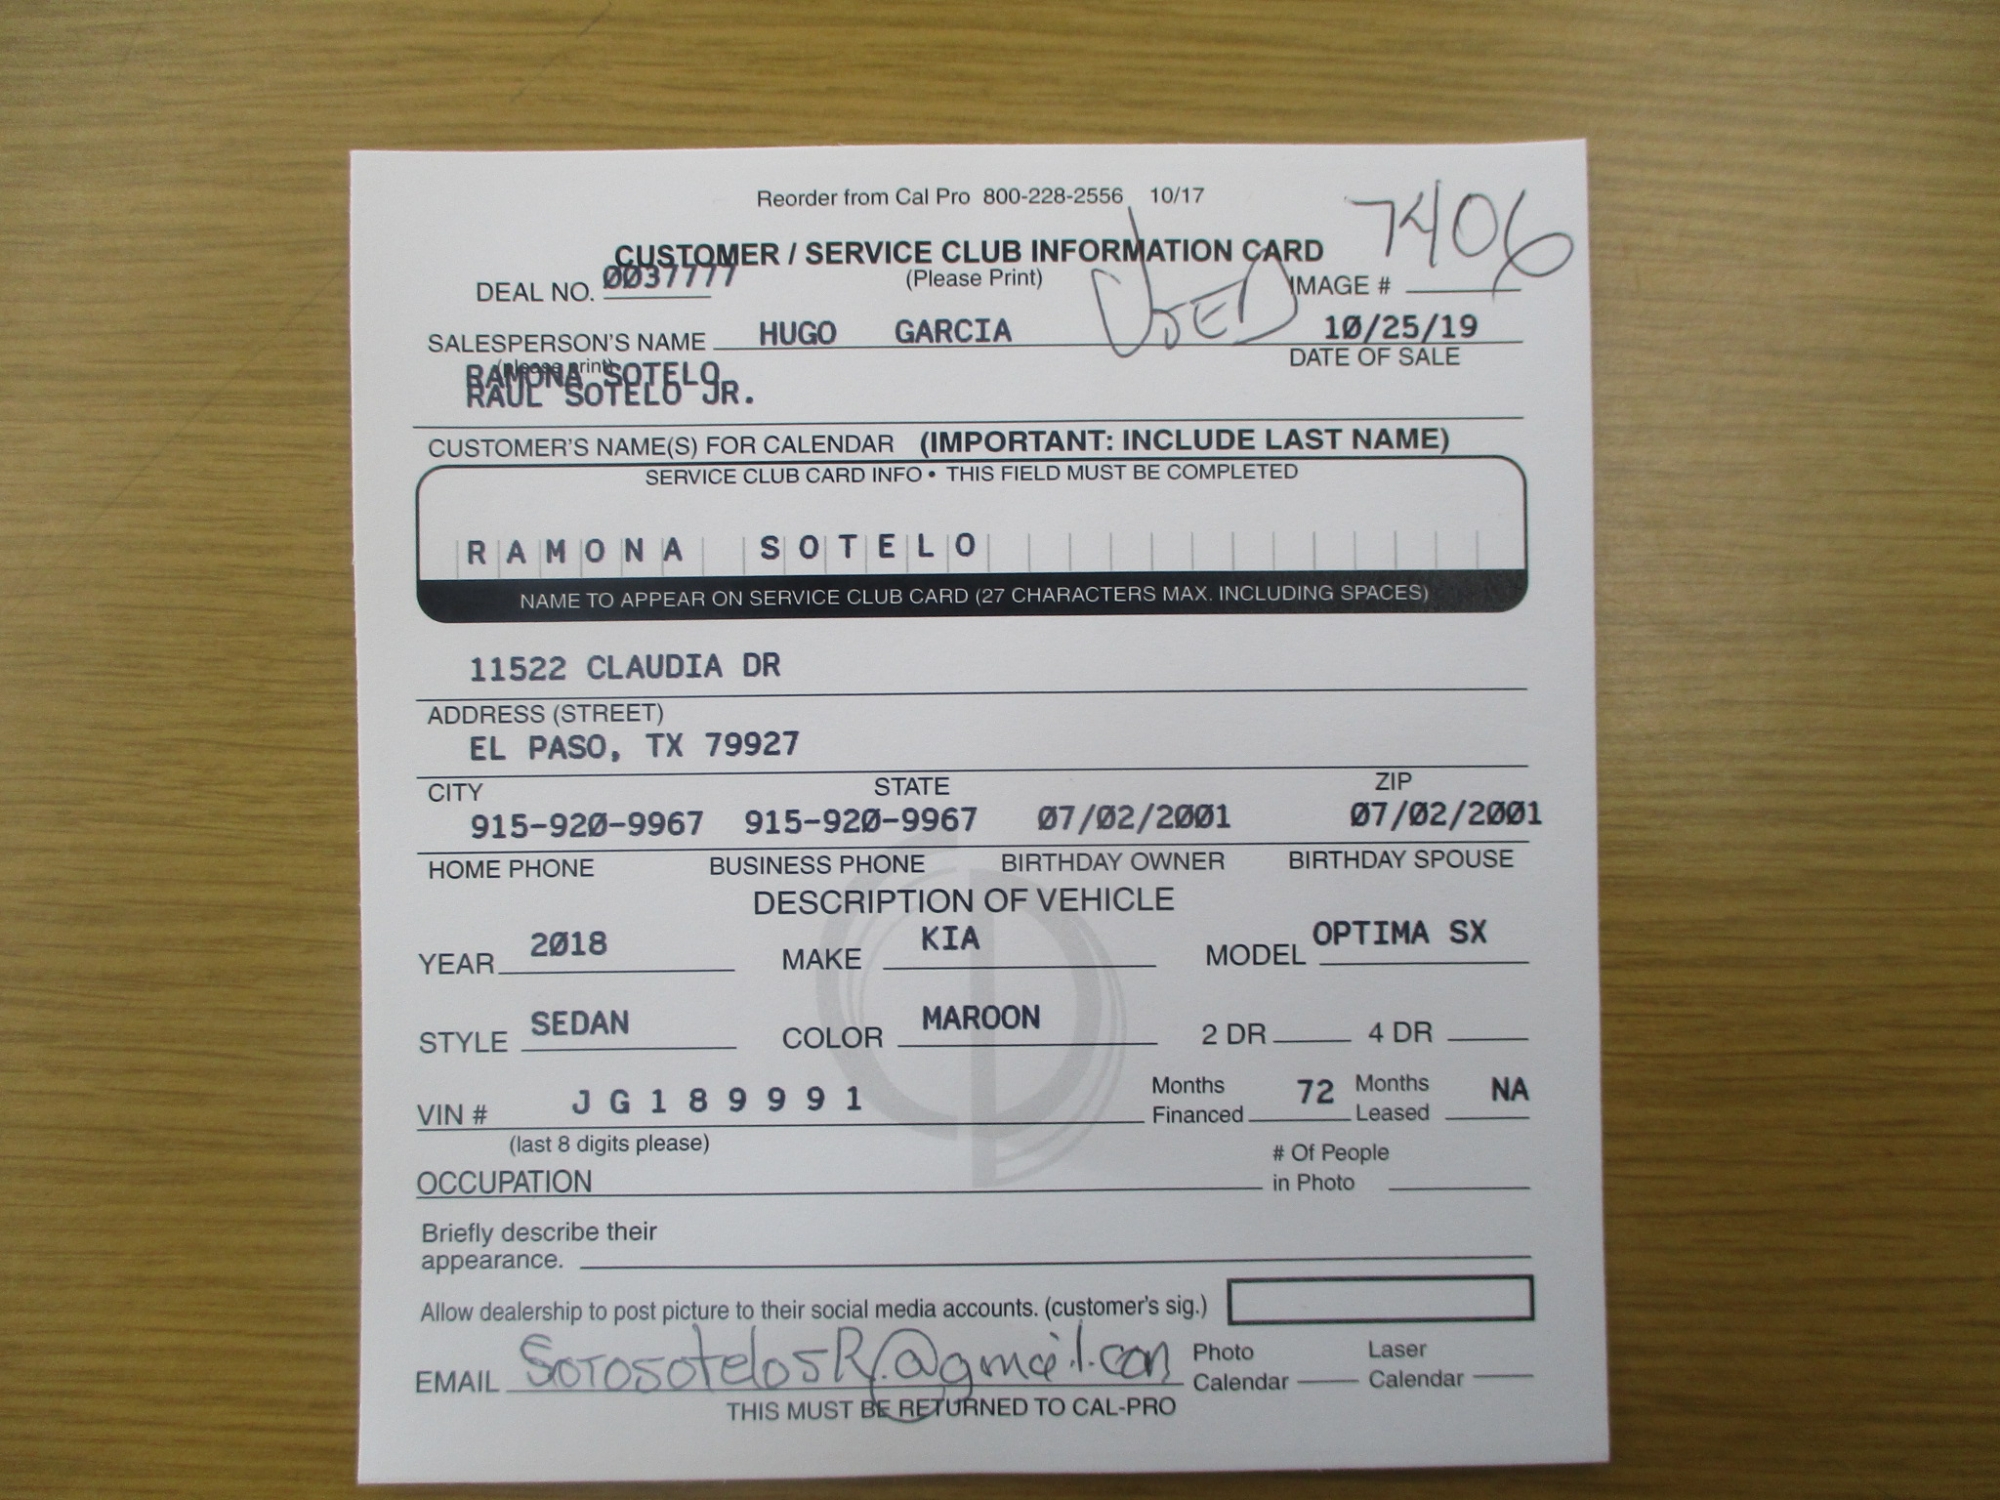 Reorder from Cal Pro 800-228-2556 10/17
7406
CUSTOMER / SERVICE CLUB INFORMATION CARD
DEAL NO. 0037777 (Please Print) USED IMAGE #
SALESPERSON'S NAME HUGO GARCIA 10/25/19
(please print) DATE OF SALE
RAMONA SOTELO
RAUL SOTELO JR.
CUSTOMER'S NAME(S) FOR CALENDAR (IMPORTANT: INCLUDE LAST NAME)
SERVICE CLUB CARD INFO • THIS FIELD MUST BE COMPLETED
RAMONA SOTELO
NAME TO APPEAR ON SERVICE CLUB CARD (27 CHARACTERS MAX. INCLUDING SPACES)
11522 CLAUDIA DR
ADDRESS (STREET)
EL PASO, TX 79927
CITY STATE ZIP
915-920-9967 915-920-9967 07/02/2001 07/02/2001
HOME PHONE BUSINESS PHONE BIRTHDAY OWNER BIRTHDAY SPOUSE
DESCRIPTION OF VEHICLE
YEAR 2018 MAKE KIA MODEL OPTIMA SX
STYLE SEDAN COLOR MAROON 2 DR 4 DR
VIN # JG189991 Months Financed 72 Months Leased NA
(last 8 digits please)
OCCUPATION # Of People in Photo
Briefly describe their
appearance.
Allow dealership to post picture to their social media accounts. (customer's sig.)
EMAIL Photo Calendar Laser Calendar
THIS MUST BE RETURNED TO CAL-PRO